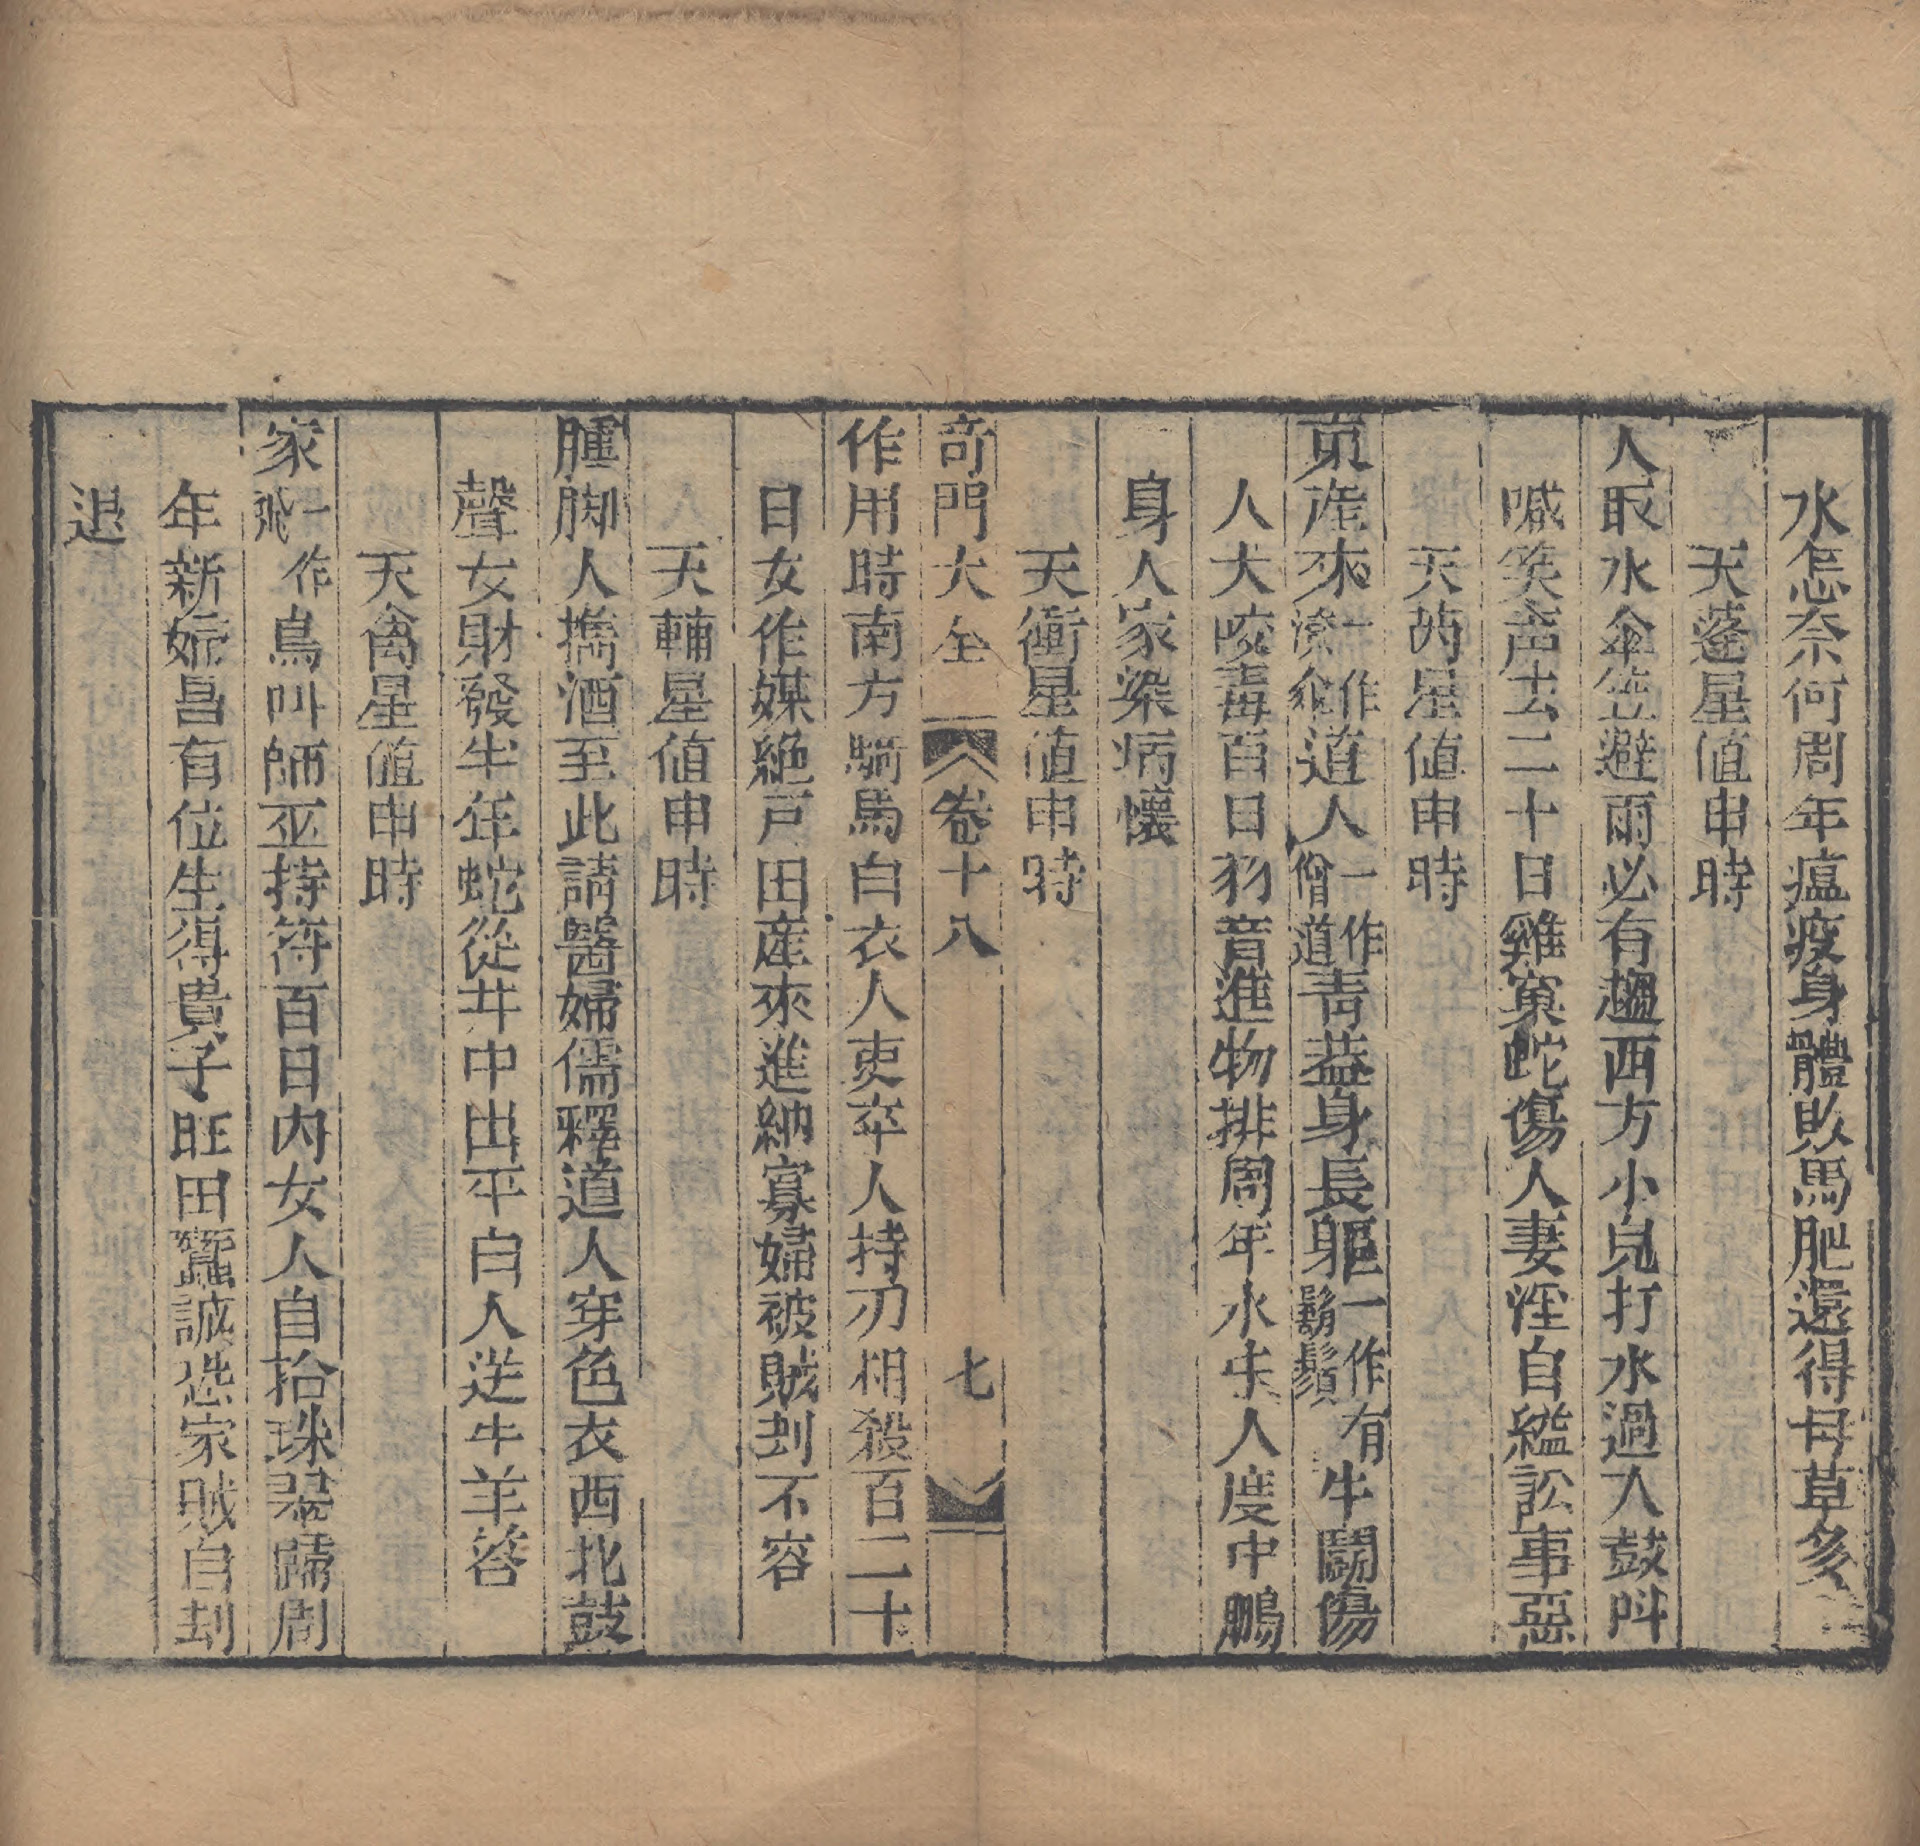 水怎奈何周年瘟疫身體敗馬肥還得母草多
天蓬星值申時
人取水傘笠避雨必有趨西方小兒打水過人鼓呌
喊笑声去二十日雞窠蛇傷人妻淫自縊訟事惡
天芮星值申時
東産來一作涼傘道人一作僧道青葢身長軀一作鬍鬚有牛鬪傷
人犬咬毒百日羽音進物排周年水牛入度中鵰
身人家染病懷
天衝星值申時
奇門大全 卷十八 七
作用時南方騎馬白衣人吏卒人持刃相殺百二十
日女作媒絶戸田産來進納寡婦被賊刦不容
天輔星值申時
腫脚人擕酒至此請醫婦儒釋道人穿色衣西北鼓
聲女財發牛年蛇從井中出平白人送牛羊荅
天禽星值申時
家一作飛鳥叫師巫持符百日内女人自拾珠翠歸周
年新婦昌有位生得貴子旺田蠶誠恐家賊自刦
退